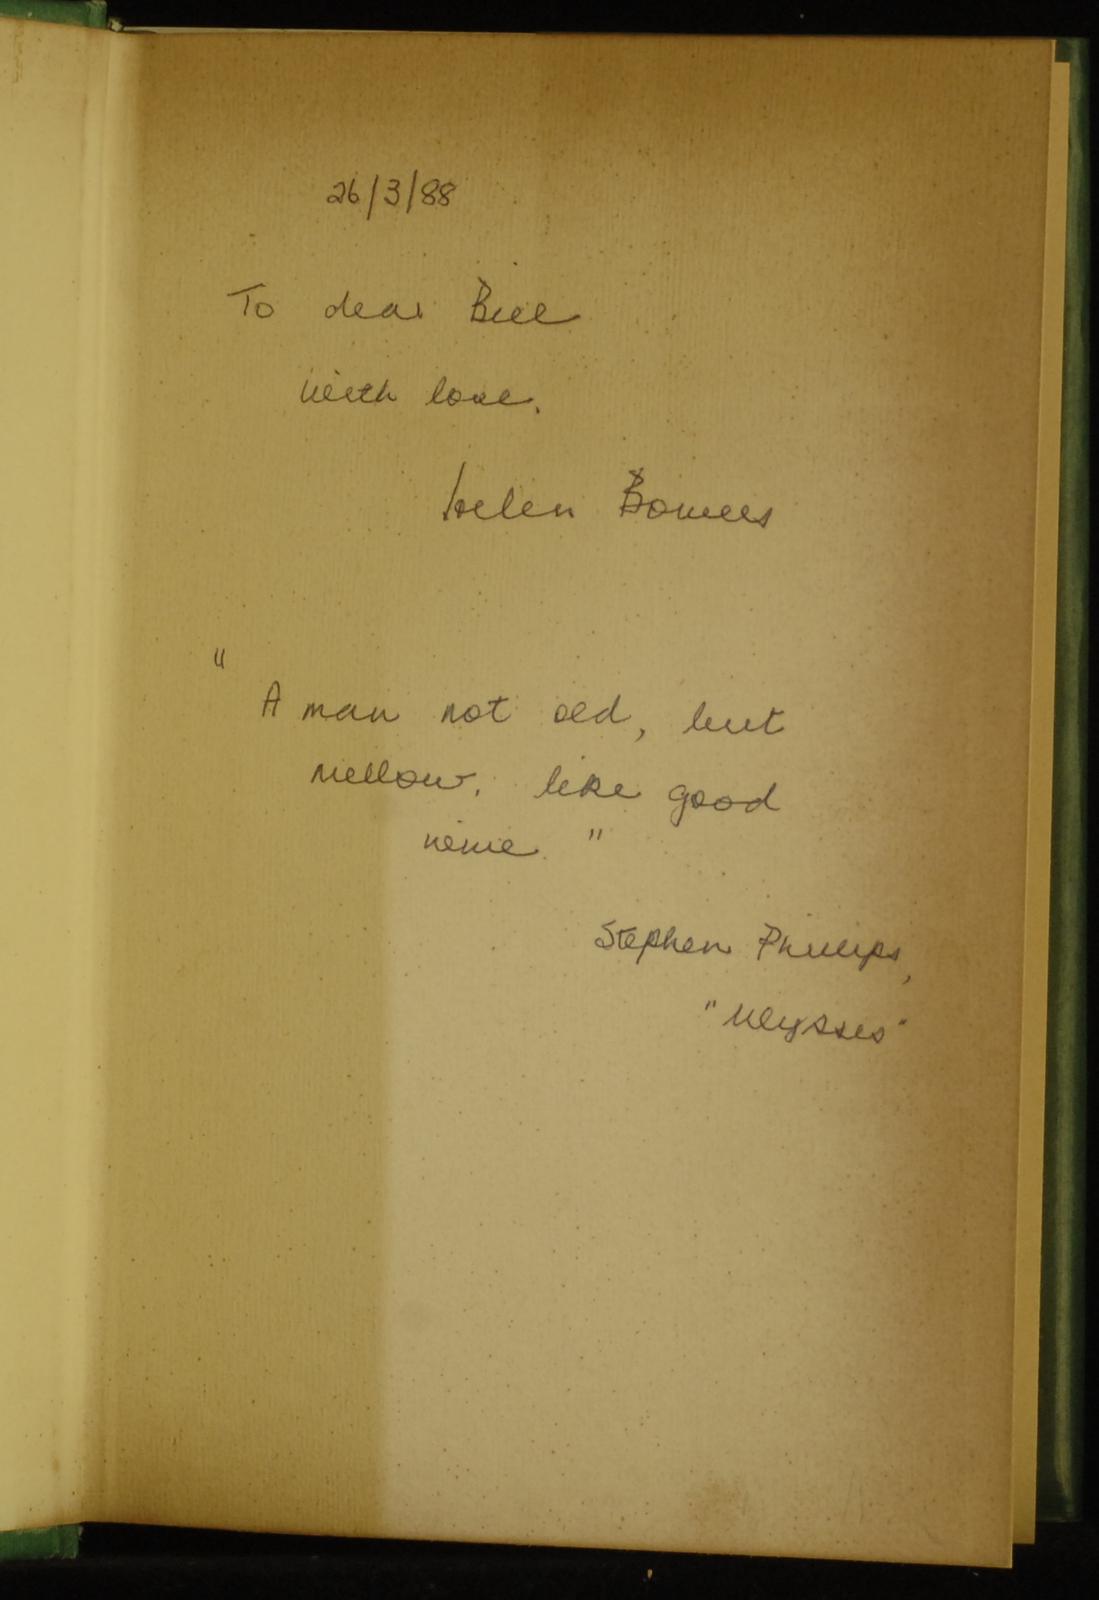 26/3/88
To dear Bill
with love.
Helen
"
A man not old, but
mellow, like good
wine "
Stephen Phillips,
"Ulysses"